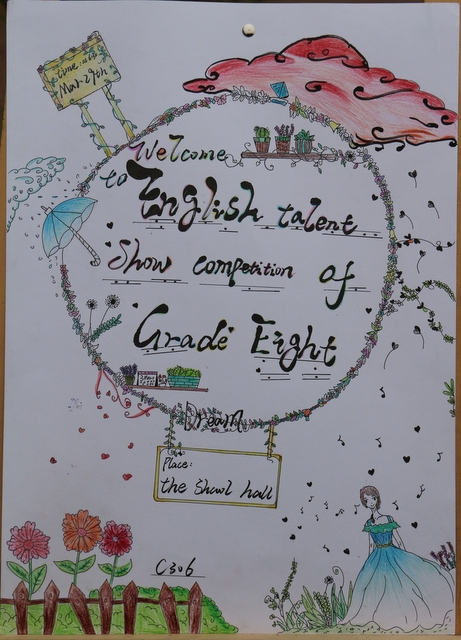 time:
Mar. 27th
Welcome
to English talent
Show competition of
Grade Eight
Dream
Place:
the Shawl hall
C306